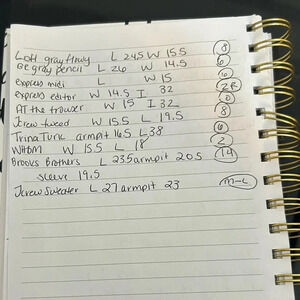 Loft gray flowy L 24.5 W 15.5 8
gray pencil L 26 W 14.5 6
express midi L W 15 6
express editor W 14.5 I 32 2R
AT the trouser W 15 I 32 0
Jcrew tweed W 15.5 L 19.5 8
Trina Turk armpit 16.5 L 38 6
WHBM W 15.5 L 18 2
Brooks Brothers L 23.5 armpit 20.5 14
sleeve 19.5
Jcrew Sweater L 27 armpit 23 M-L